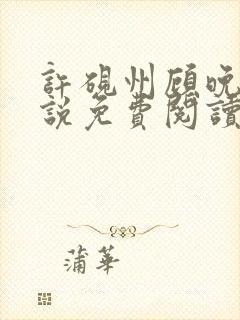 許硯州顾晚
説免費閱讀
蒲華